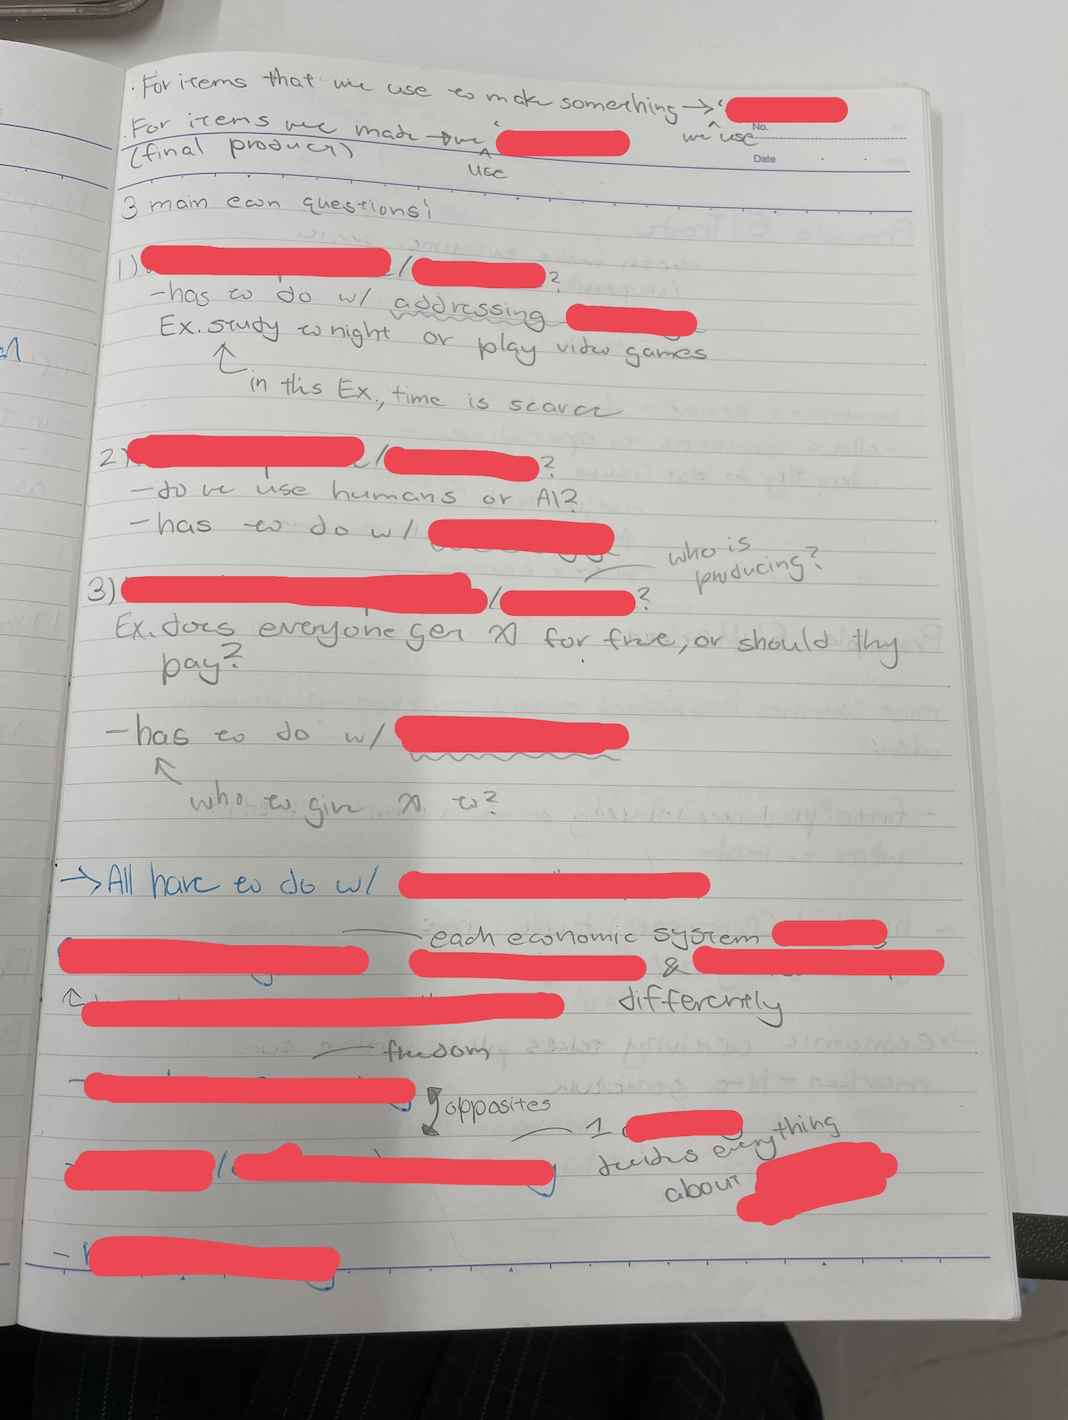 · For items that we use to make something → '
we ^ use
No.
· For items we made → we '
^ use
(final product)
Date
3 main econ questions:
1) / ?
- has to do w/ addressing
Ex. study tonight or play video games
↑ in this Ex., time is scarce
2) / ?
- do we use humans or AI?
- has to do w/
who is producing?
3) / ?
Ex. does everyone get x for free, or should thy
pay?
- has to do w/
↑ who to give x to?
→ All have to do w/
each economic system
&
differently
freedom
-
opposites
1
decides everything
about
- /
-